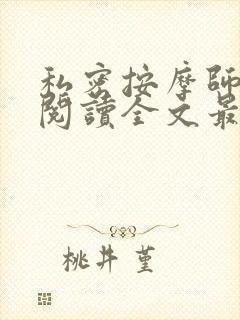 私密按摩師
閱讀全文最
桃井 堇